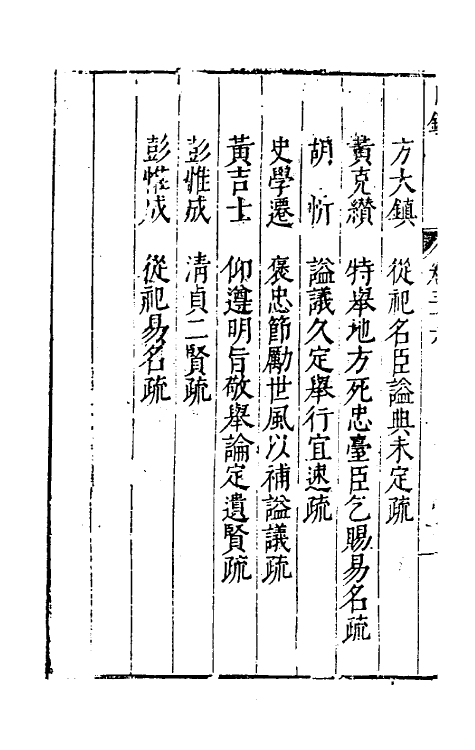 目錄 卷三十六
方大鎮 從祀名臣謚典未定疏
黃克纘 特舉地方死忠臺臣乞賜易名疏
胡忻 謚議久定舉行宜速疏
史學遷 褒忠節勵世風以補謚議疏
黃吉士 仰遵明旨敬舉論定遺賢疏
彭惟成 清貞二賢疏
彭惟成 從祀易名疏